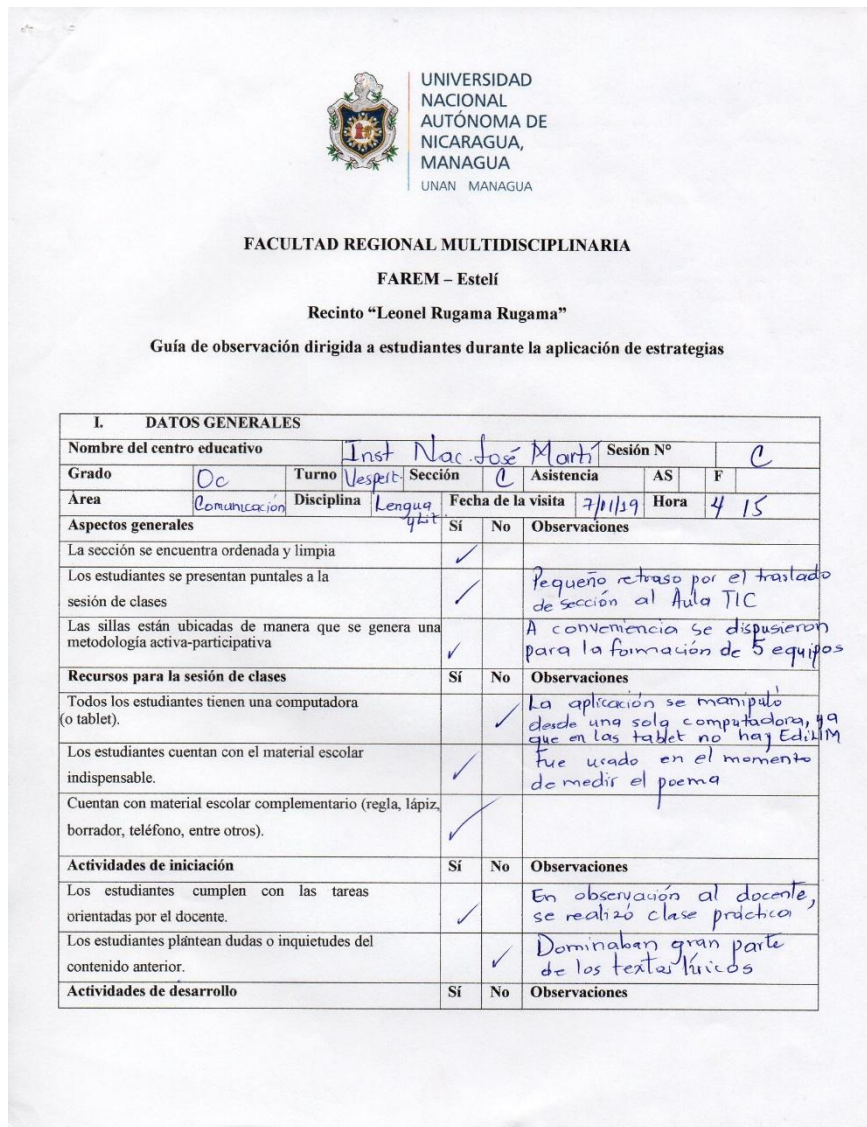 UNIVERSIDAD
NACIONAL
AUTÓNOMA DE
NICARAGUA,
MANAGUA
UNAN MANAGUA
FACULTAD REGIONAL MULTIDISCIPLINARIA
FAREM – Estelí
Recinto “Leonel Rugama Rugama”
Guía de observación dirigida a estudiantes durante la aplicación de estrategias
I. DATOS GENERALES
Nombre del centro educativo Inst Nac. José Martí Sesión N° C
Grado 0c Turno Vespert. Sección C Asistencia AS F
Área Comunicación Disciplina Lengua y Lit Fecha de la visita 7/11/19 Hora 4 15
Aspectos generales Sí No Observaciones
La sección se encuentra ordenada y limpia ✓
Los estudiantes se presentan puntales a la
sesión de clases ✓
Pequeño retraso por el traslado
de sección al Aula TIC
Las sillas están ubicadas de manera que se genera una
metodología activa-participativa ✓
A conveniencia se dispusieron
para la formación de 5 equipos
Recursos para la sesión de clases Sí No Observaciones
Todos los estudiantes tienen una computadora
(o tablet). ✓
La aplicación se manipuló
desde una sola computadora, ya
que en las tablet no hay EdiLIM
Los estudiantes cuentan con el material escolar
indispensable. ✓
Fue usado en el momento
de medir el poema
Cuentan con material escolar complementario (regla, lápiz,
borrador, teléfono, entre otros). ✓
Actividades de iniciación Sí No Observaciones
Los estudiantes cumplen con las tareas
orientadas por el docente. ✓
En observación al docente,
se realizó clase práctica
Los estudiantes plantean dudas o inquietudes del
contenido anterior. ✓
Dominaban gran parte
de los textos líricos
Actividades de desarrollo Sí No Observaciones